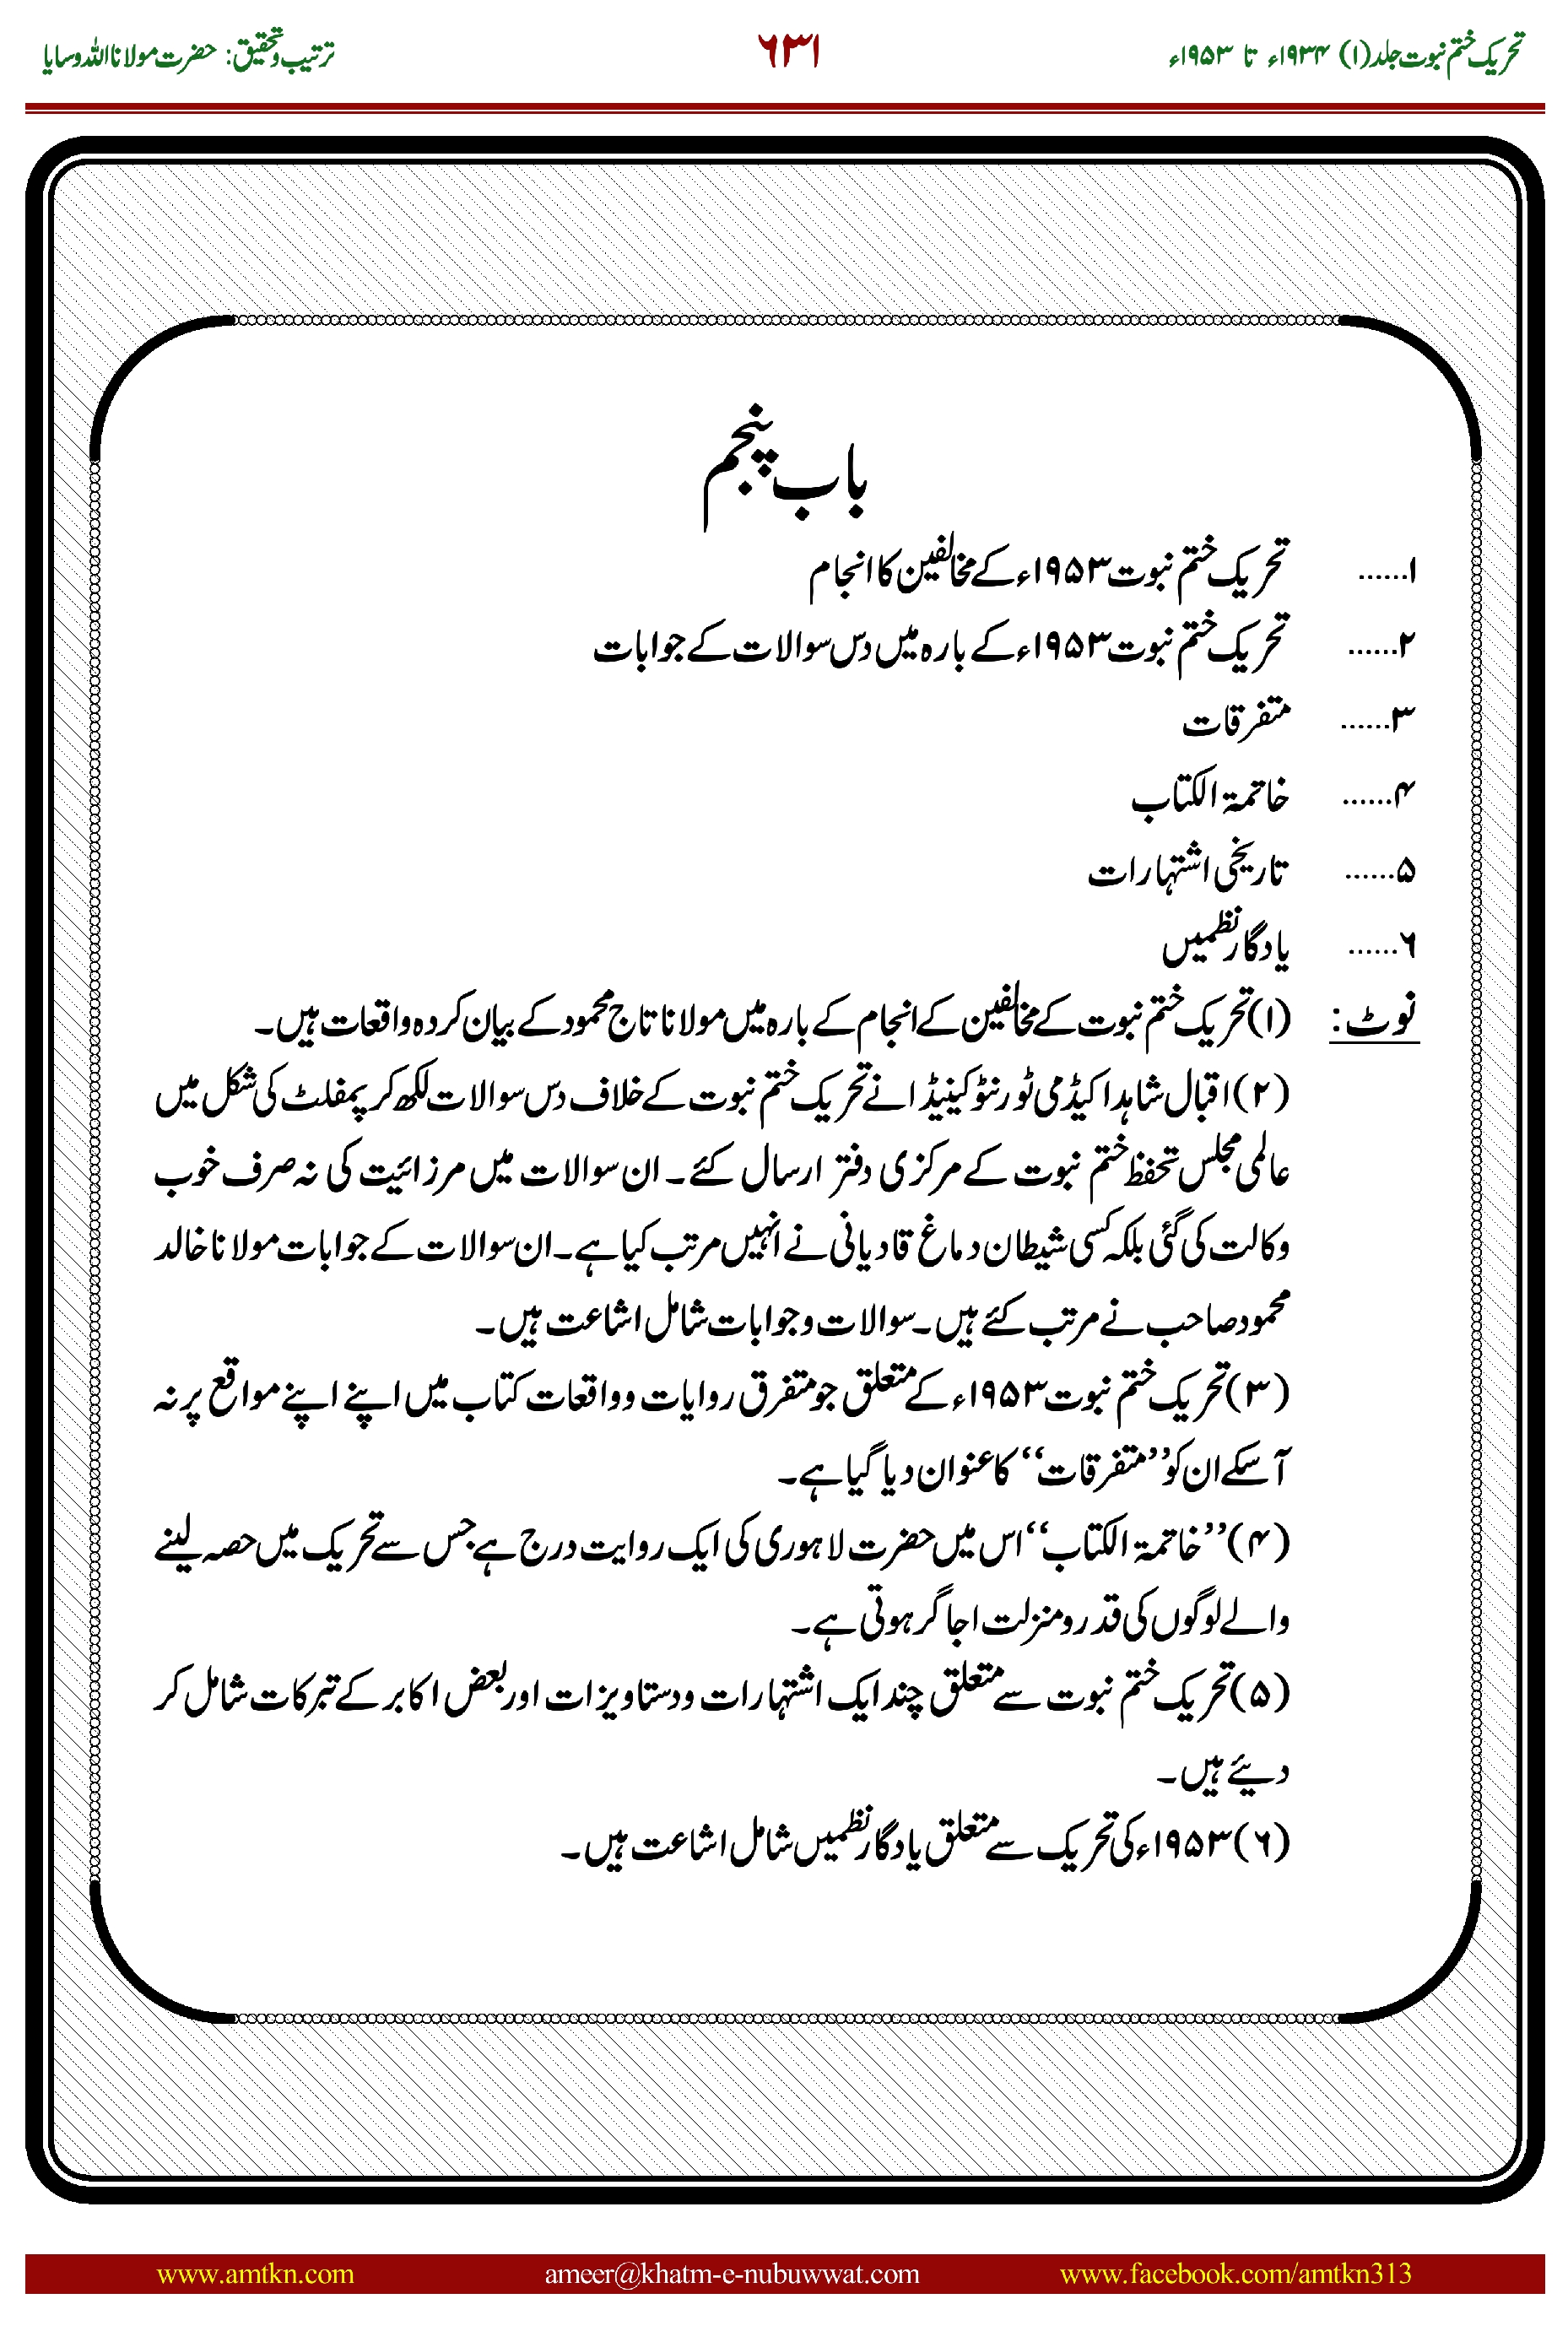 تحریک ختم نبوت جلد(۱) ۱۹۳۴ء تا ۱۹۵۳ء
۶۳۱
ترتیب و تحقیق: حضرت مولانا اللہ وسایا
باب پنجم
۱...... تحریک ختم نبوت ۱۹۵۳ء کے مخالفین کا انجام
۲...... تحریک ختم نبوت ۱۹۵۳ء کے بارہ میں دس سوالات کے جوابات
۳...... متفرقات
۴...... خاتمۃ الکتاب
۵...... تاریخی اشتہارات
۶...... یادگار نظمیں
نوٹ: (۱) تحریک ختم نبوت کے مخالفین کے انجام کے بارہ میں مولانا تاج محمود کے بیان کردہ واقعات ہیں۔
(۲) اقبال شاہد اکیڈمی ٹورنٹو کینیڈا نے تحریک ختم نبوت کے خلاف دس سوالات لکھ کر پمفلٹ کی شکل میں
عالمی مجلس تحفظ ختم نبوت کے مرکزی دفتر ارسال کئے۔ ان سوالات میں مرزائیت کی نہ صرف خوب
وکالت کی گئی بلکہ کسی شیطان دماغ قادیانی نے انہیں مرتب کیا ہے۔ ان سوالات کے جوابات مولانا خالد
محمود صاحب نے مرتب کئے ہیں۔ سوالات و جوابات شامل اشاعت ہیں۔
(۳) تحریک ختم نبوت ۱۹۵۳ء کے متعلق جو متفرق روایات و واقعات کتاب میں اپنے اپنے مواقع پر نہ
آ سکے ان کو ’’متفرقات‘‘ کا عنوان دیا گیا ہے۔
(۴) ’’خاتمۃ الکتاب‘‘ اس میں حضرت لاہوری کی ایک روایت درج ہے جس سے تحریک میں حصہ لینے
والے لوگوں کی قدر و منزلت اجاگر ہوتی ہے۔
(۵) تحریک ختم نبوت سے متعلق چند ایک اشتہارات و دستاویزات اور بعض اکابر کے تبرکات شامل کر
دیئے ہیں۔
(۶) ۱۹۵۳ء کی تحریک سے متعلق یادگار نظمیں شامل اشاعت ہیں۔
www.amtkn.com ameer@khatm-e-nubuwwat.com www.facebook.com/amtkn313